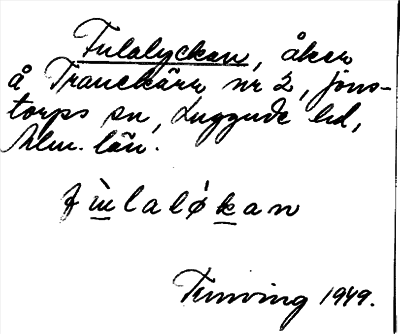 Fulalyckan, åker
å Tranekärr nr 2, Jons-
torps sn, Luggude hd,
Mlm. län.
fùlaløkan
Tenving 1949.